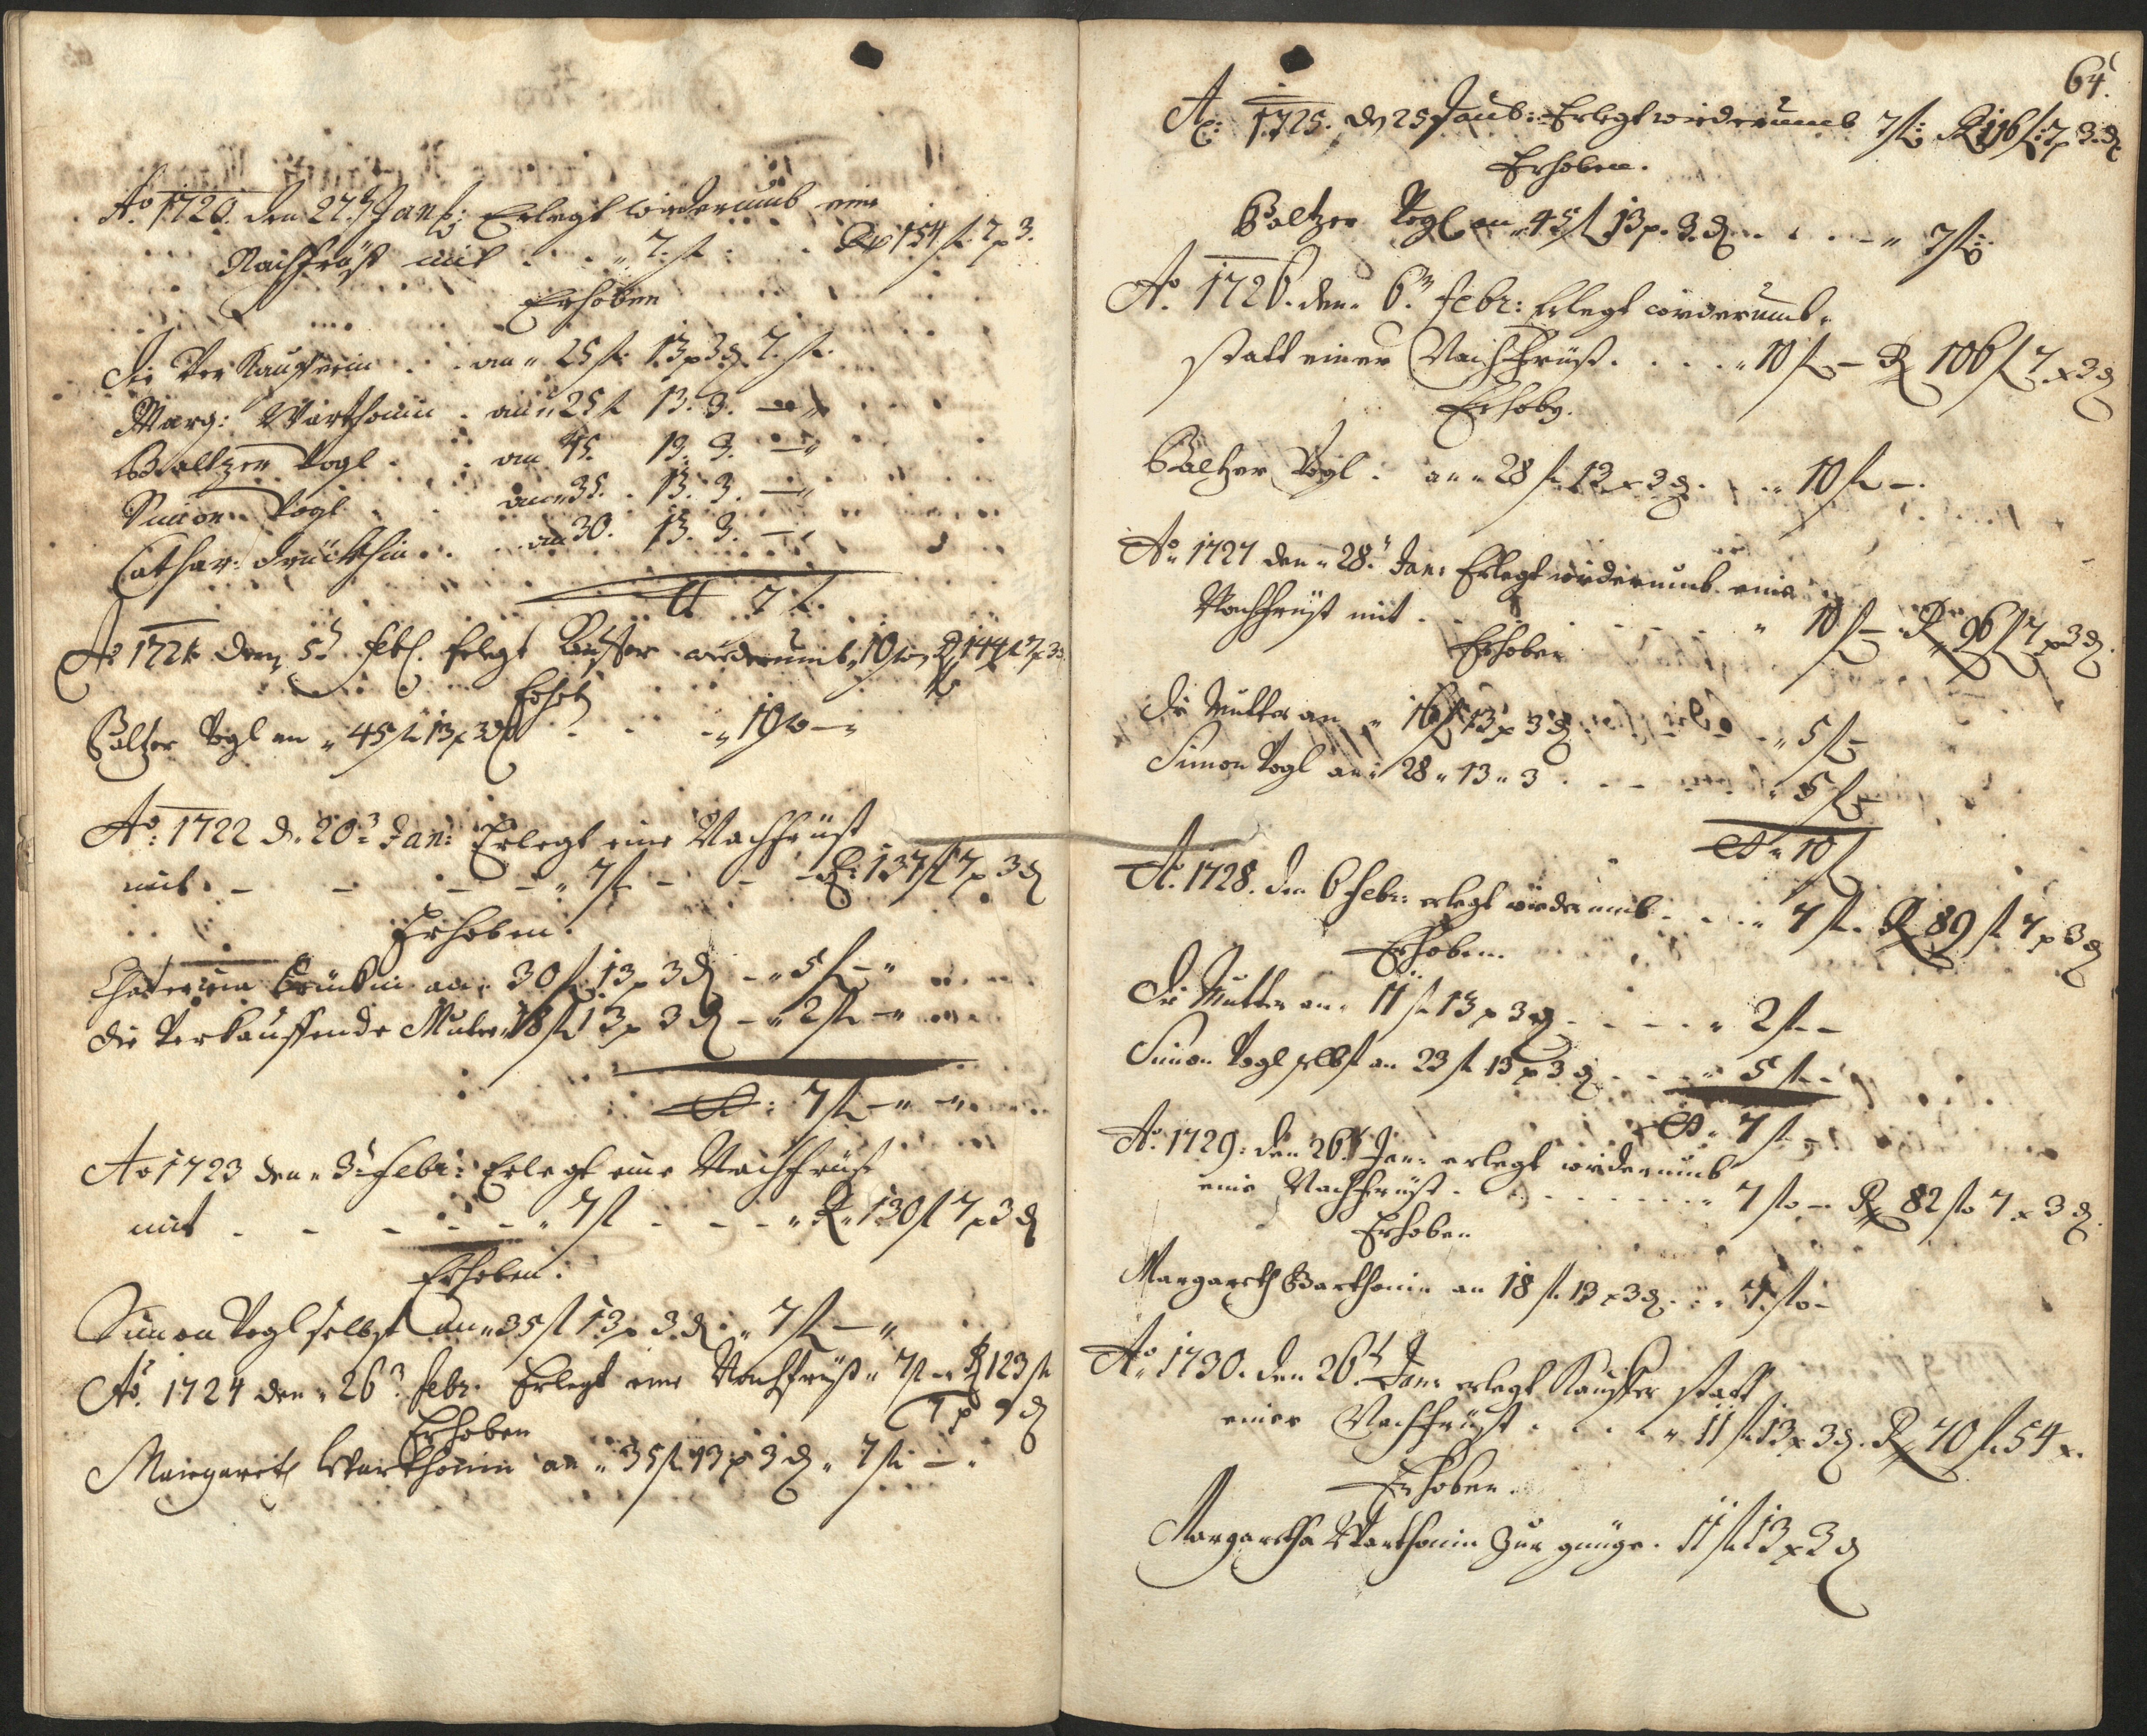 Ao 1720. den 27. Jan: Erlegt widerumb eine
Nachfrüst mit . . „ 7. fl: . . R 154 fl 7 x 3.
Erhoben
die Verkaufferin . . an „ 25 fl: 13 x 3 d 7. fl:
Marg: Warthonin . an „ 25 fl 13. 3. — „
Baltzer Vogl . . an 45. 13. 3. — „
Simon Vogl . . an „ 35. . 13. 3. — „
Cathar: . . an 30. 13. 3. — „
7 fl.
Ao 1721 den 5. feb. Erlegt Kauffer widerumb 10 fl R 144 fl 7 x 3 d
Erhebt
Baltzer Vogl an „ 45 fl 13 x 3 d . . . „ 10 fl — „
Ao: 1722 d. 20. Jan: Erlegt eine Nachfrüst
mit . — — — — „ 7 fl — — — R: 137 fl 7 x 3 d
Erhoben.
Chaterina an „ 30 fl 13 x 3 d — „ 5 fl — „
die Verkauffende Muter 18 fl 13 x 3 d — „ 2 fl — „
: 7 fl — „
Ao 1723 den „ 3. Febr: Erlegt eine Nachfrüst
mit . — — — — „ 7 fl . — — „ R „ 130 fl 7 x 3 d
Erhoben:
Simon Vogl selbst an „ 35 fl 13 x 3 d . „ 7 fl — „
Ao. 1724 den „ 26. febr. Erlegt eine Nachfrüst „ 7 fl — R 123 fl
7 x 3 d
Erhoben
Margareth Warthonin an „ 35 fl 13 x 3 d „ 7 fl — „
64.
A: 1725. d 25 Erlegt widerumb 7 fl: R 116 fl: 7 x 3 d
Erhoben.
Baltzer Vogl an „ 45 fl 13 x. 3. d . . . — „ 7 fl:
Ao. 1726. den „ 6. febr: Erlegt widerumb „
statt einer Nachfrüst . . . . „ 10 fl — R 106 fl 7 x 3 d
Erhobn.
Baltzer Vogl . an „ 28 fl 13 x 3 d . . „ 10 fl — .
Ao „ 1727 den „ 28. Jan: Erlegt widerumb eine
Nachfrüst mit . . . . . . „ 10 fl — R 96 fl 7 x 3 d.
Erhoben
die Mutter an „ 16 fl 13 x 3 d . . . „ 5 fl —
Simon Vogl an „ 28 „ 13 „ 3 . . . . „ 5 fl —
„ 10 fl
Ao. 1728. den 6 febr: erlegt widerumb . . . „ 7 fl. R 89 fl 7 x 3 d
Erhoben.
Die Mutter an „ 11 fl 13 x 3 d . . . . „ 2 fl —
Simon Vogl selbst an 23 fl 13 x 3 d . . . „ 5 fl —
„ 7 fl —
Ao. 1729: den 26. Jan: erlegt widerumb
eine Nachfrüst . . . . . . „ 7 fl — R 82 fl 7 x 3 d.
Erhoben
Margareth Warthonin an 18 fl. 13 x 3 d . . „ 7 fl —
Ao. 1730. den 26. Jan: erlegt Kauffer statt
einer Nachfrüst . . . „ 11 fl 13 x 3 d. R 70 fl. 54 x.
Erhoben.
Margaretha Warthonin zur gnüge. 11 fl 13 x 3 d